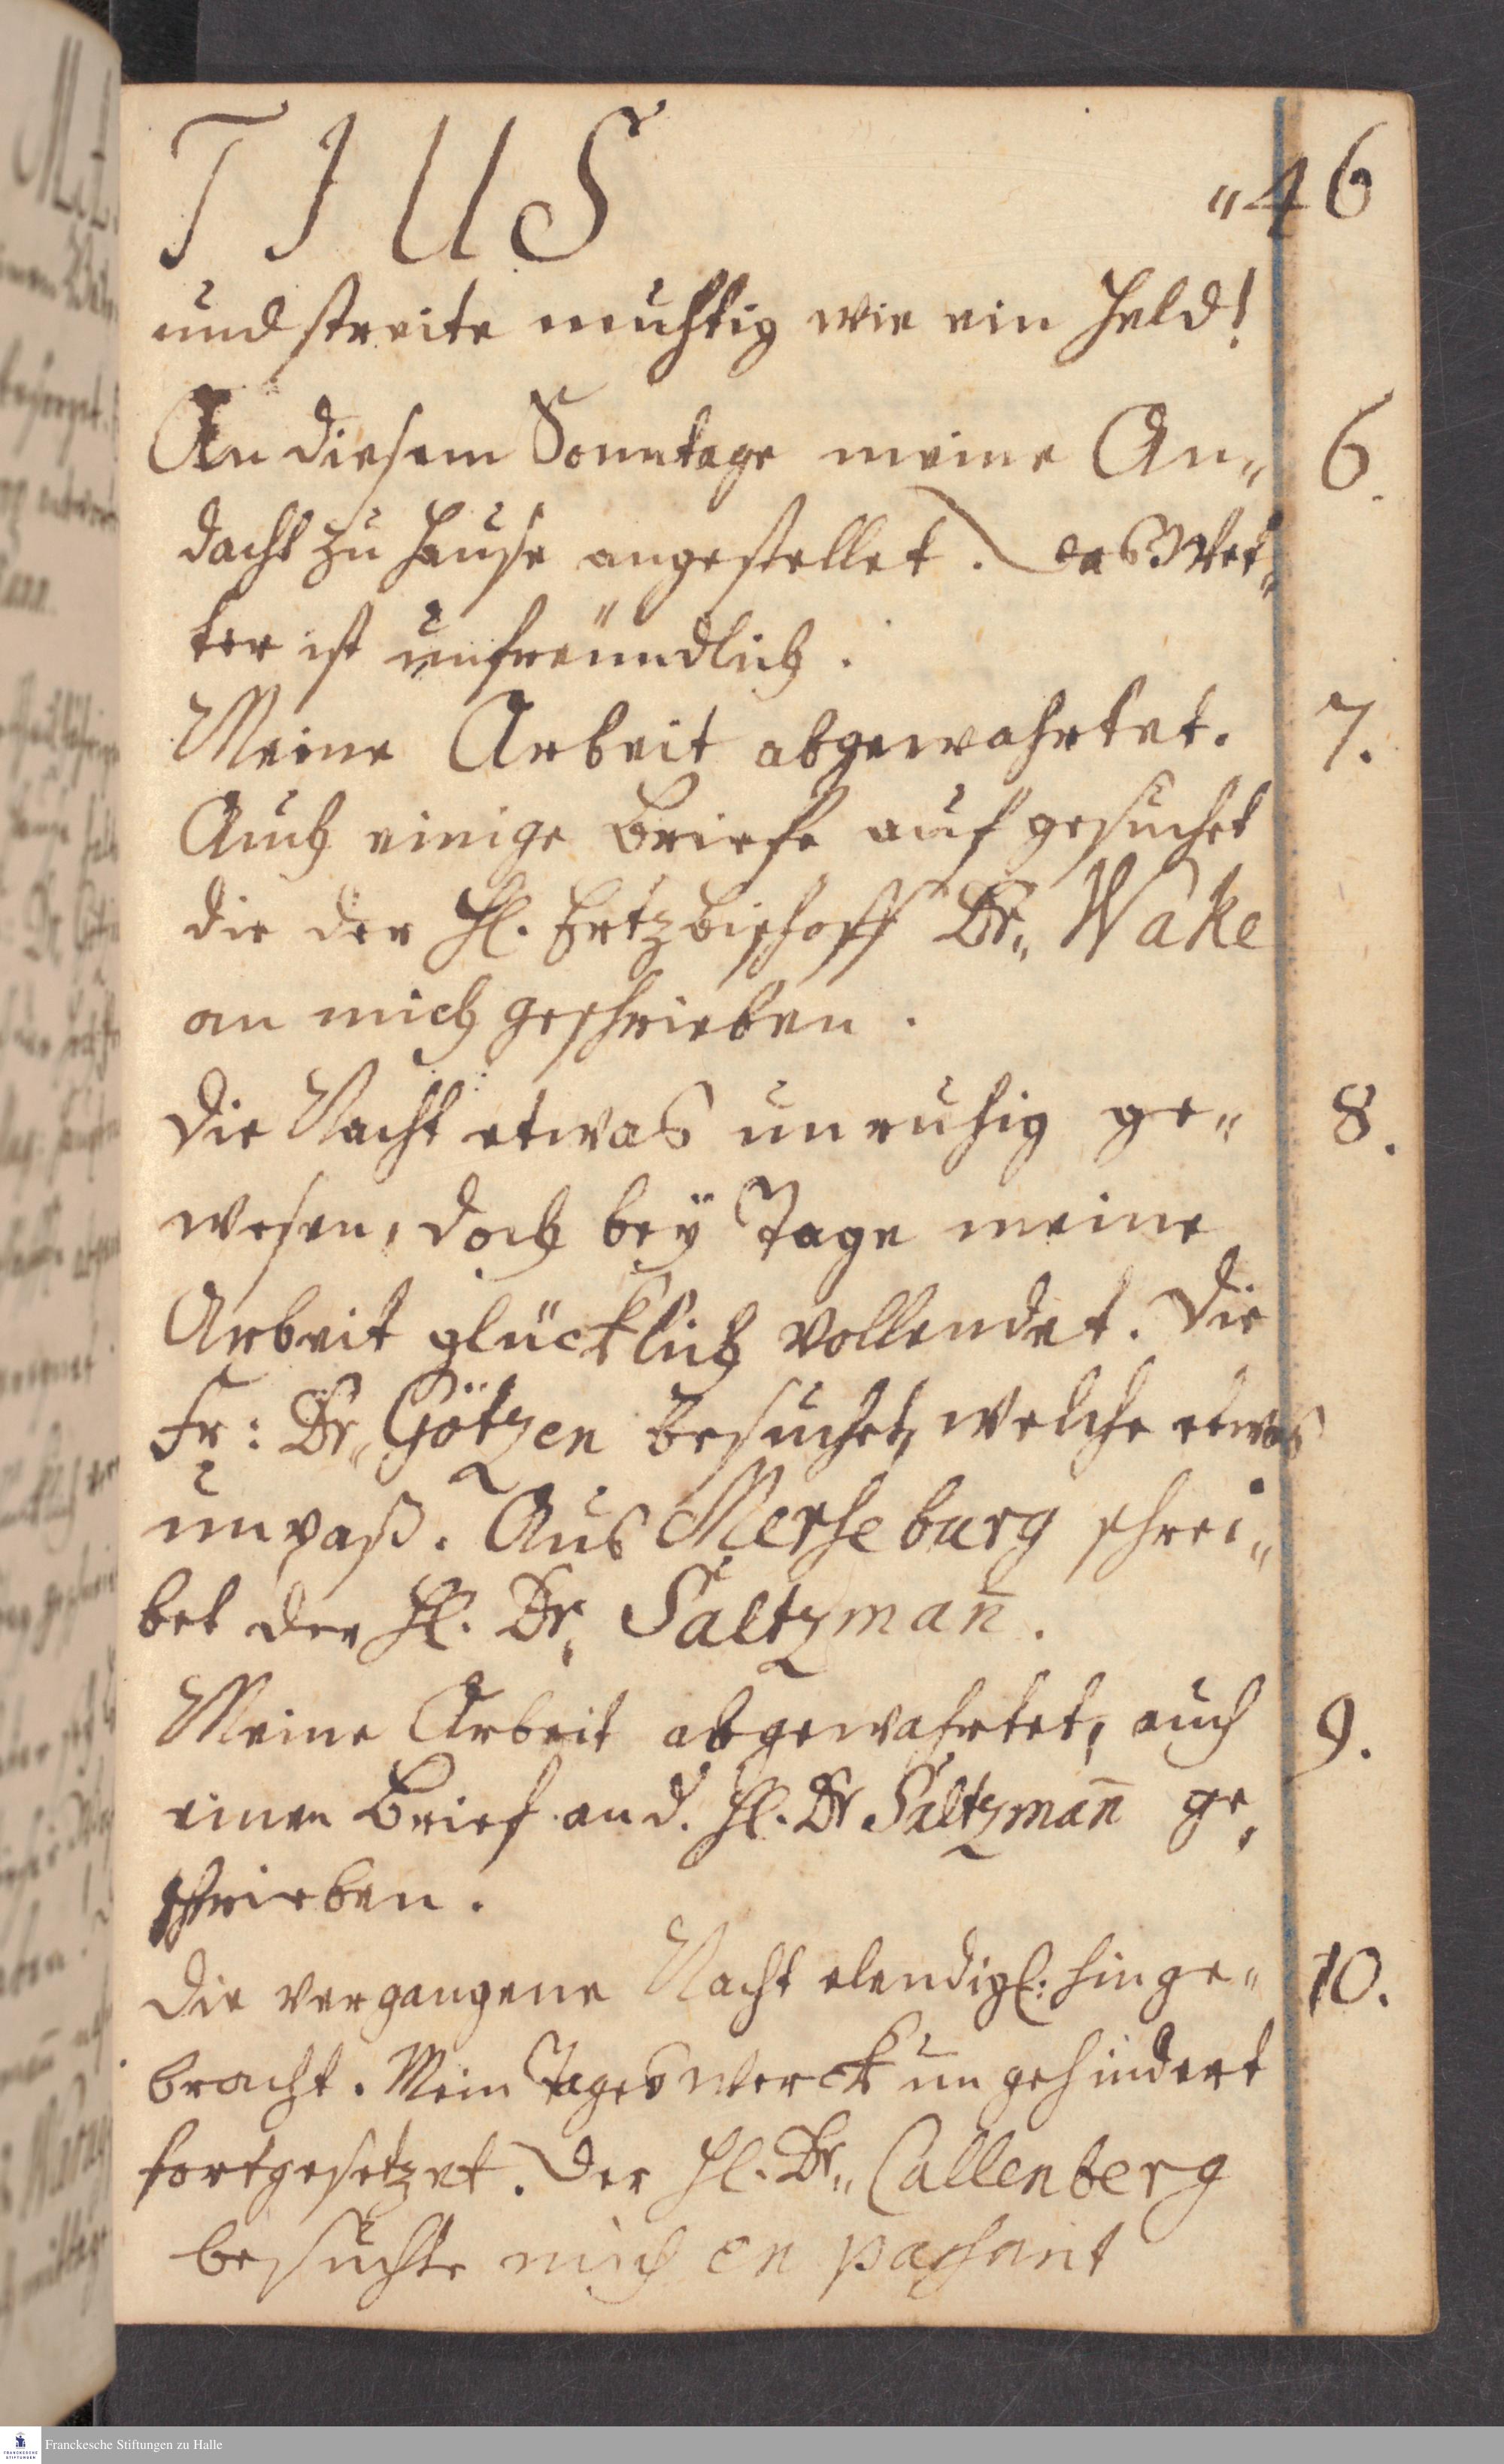 TIUS „46
und streite muhtig wie ein Held!
An diesem Sonntage meine An„ 6.
dacht zu Hause angestellet. das Wet„
ter ist unfreündlich.
Meine Arbeit abgewahrtet. 7.
Auch einige Briefe auf gesuchet
die der Hl. Ertzbischoff Dr„ Wake
an mich geschrieben.
Die Nacht etwas unruhig ge„ 8.
wesen, doch beÿ Tage meine
Arbeit glücklich vollendet. Die
Fr: Dr„ Götzen besuchet, welche etwas
unpaß. Aus Merseburg schrei„
bet der Hl. Dr, Saltzman̄.
Meine Arbeit abgewahrtet, auch 9.
einen Brief an d. Hl. Dr Saltzman̄ ge,
schrieben.
Die vergangene Nacht elendigl: hinge„ 10.
bracht. Mein Tageswerck ungehindert
fortgesetzet. Der Hl. Dr„ Callenberg
besuchte mich en passant
Franckesche Stiftungen zu Halle